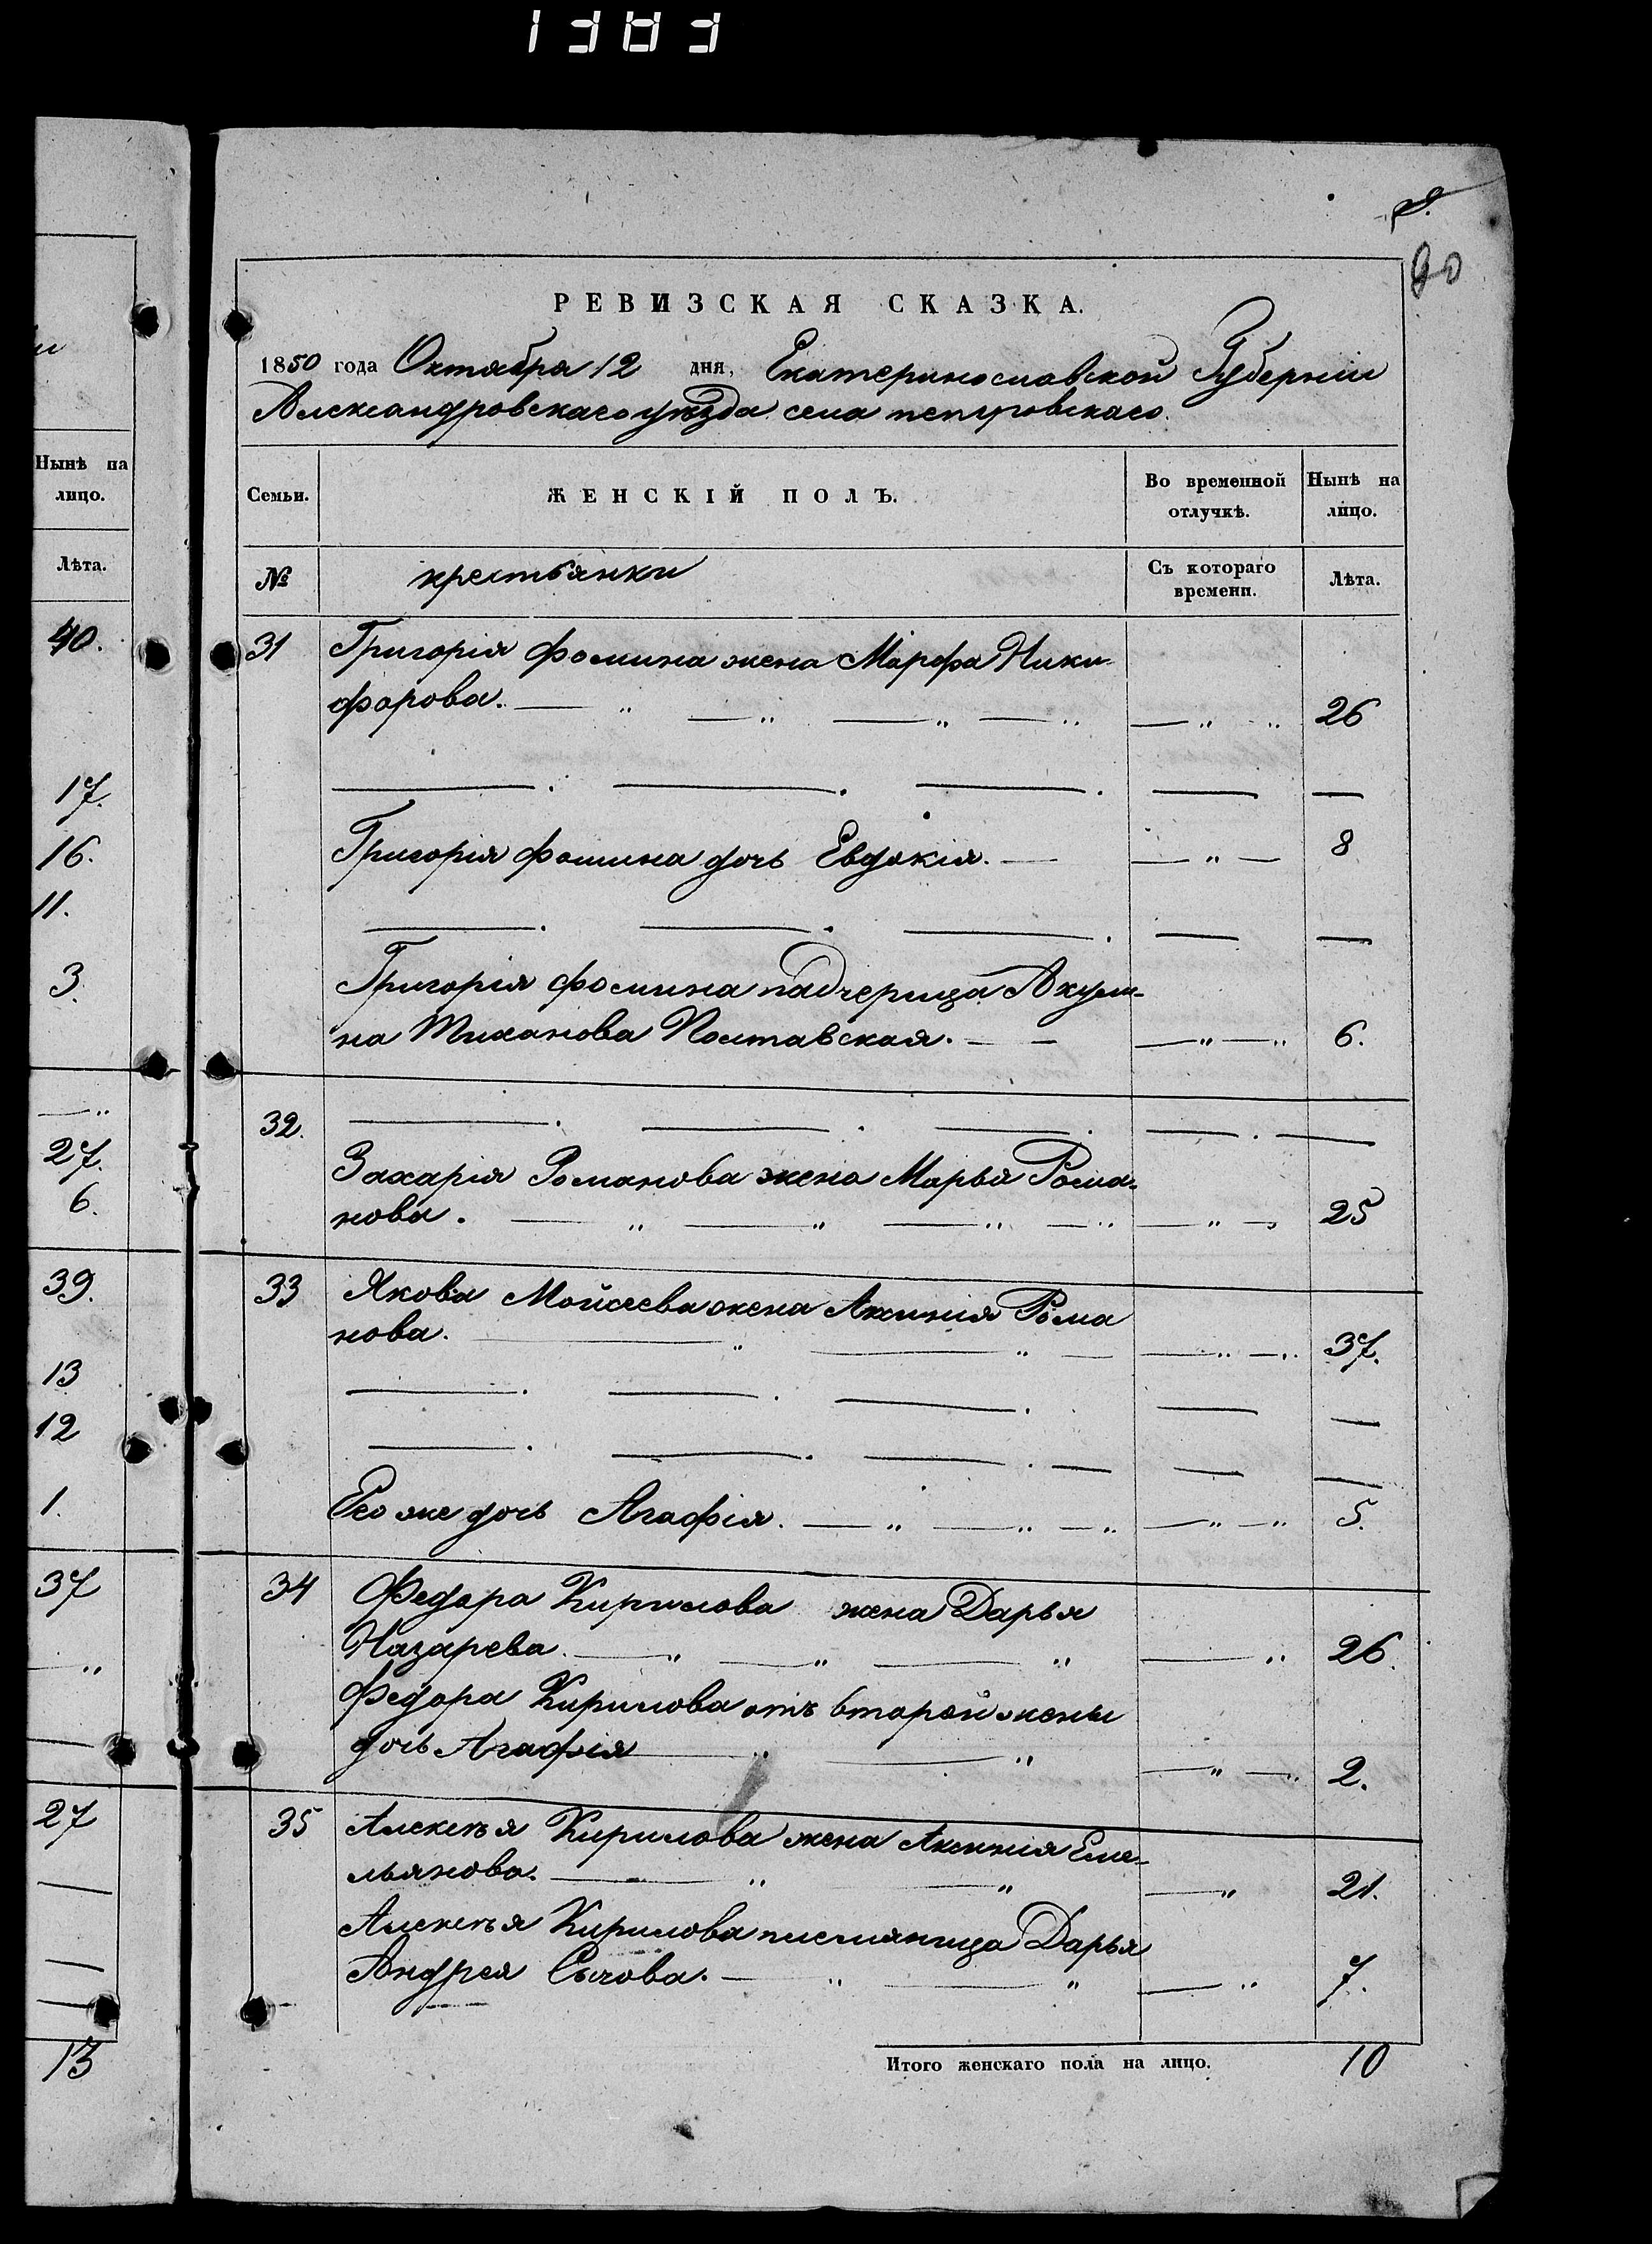 1383
90
РЕВИЗСКАЯ СКАЗКА.
1850 года Октября 12 дня, Екатеринославской Губерніи
Александровскаго уѣзда села петровскаго.
Нынѣ на
лицо.
Лѣта.
40.
17.
16.
11.
3.
27.
6.
39.
13
12
1.
37
27
13
Семьи. ЖЕНСКІЙ ПОЛЪ. Во временной отлучкѣ. Нынѣ на лицо.
№ крестьянки Съ котораго времени. Лѣта.
31 Григорія Фомина жена Марфа Ники
форова. 26
Григорія Фомина дочь Евдокія. 8
Григорія Фомина падчерица Акули-
на Тиханова Полтавская. 6.
32.
Захарія Романова жена Марья Рома-
нова. 25
33 Якова Мойсеева жена Аксинія Рома
нова. 37.
Его же дочь Агафія. 5.
34 Федора Кирилова жена Дарья
Назарева. 26.
Федора Кирилова отъ второй жены
дочь Агафія 2.
35 Алексѣя Кирилова жена Аксинія Еме-
льянова. 21.
Алексѣя Кирилова племяница Дарья
Андрея Сычова. 7.
Итого женскаго пола на лицо. 10